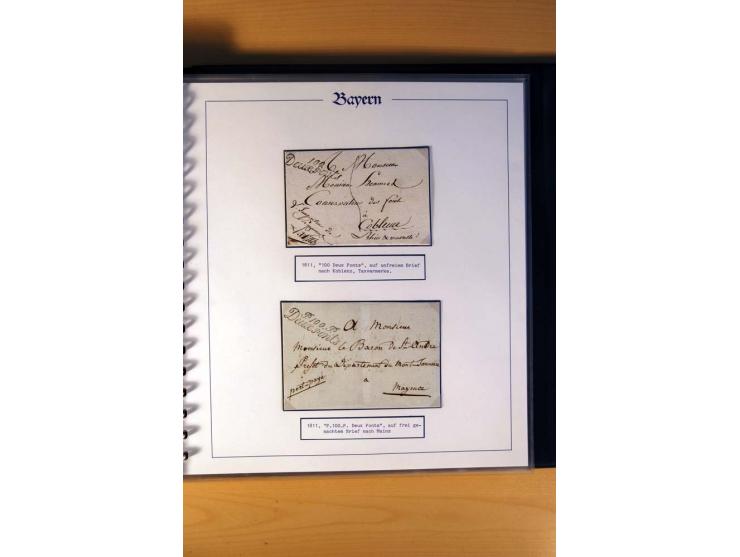 Bayern
100
Deux Ponts
Monsieur
à
Monsieur
Conservateur des forêt
à
Coblence
1811, "100 Deux Ponts", auf unfreiem Brief
nach Koblenz, Taxvermerke.
P.100.P.
Deux Ponts
A Monsieur
Monsieur le Baron de St. André
Préfet du Département du Mont-Tonnerre
port-payé
à
Mayence
1811, "P.100.P. Deux Ponts", auf frei ge-
machtem Brief nach Mainz